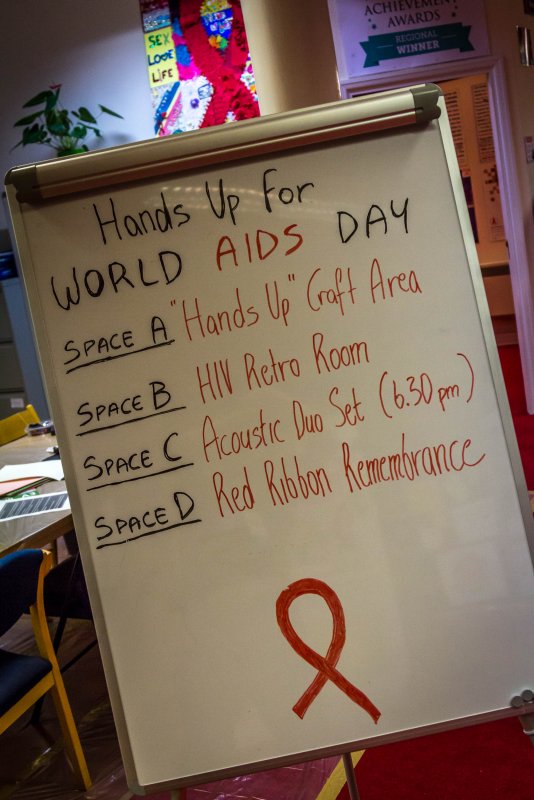 ACHIEVEMENT
AWARDS
REGIONAL
WINNER
SEX
LOVE
LIFE
Hands Up For
WORLD AIDS DAY
SPACE A "Hands Up" Craft Area
SPACE B HIV Retro Room
SPACE C Acoustic Duo Set (6.30 pm)
SPACE D Red Ribbon Remembrance